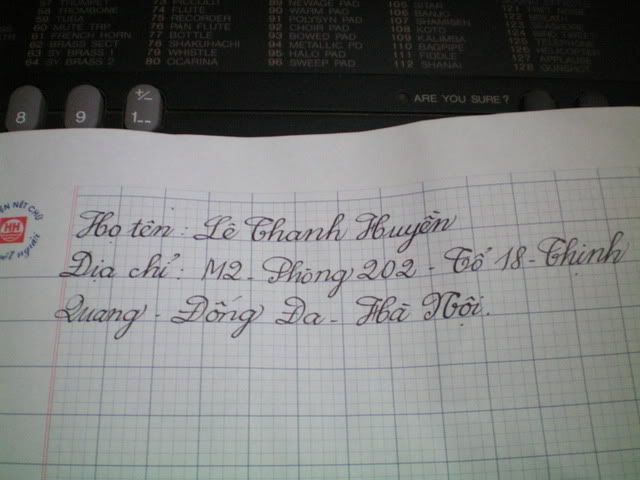 57 TRUMPET
58 TROMBONE
59 TUBA
60 MUTE TRP
61 FRENCH HORN
62 BRASS SECT
63 SY BRASS 1
64 SY BRASS 2
73 PICCOLO
74 FLUTE
75 RECORDER
76 PAN FLUTE
77 BOTTLE
78 SHAKUHACHI
79 WHISTLE
80 OCARINA
89 NEWAGE PAD
90 WARM PAD
91 POLYSYN PAD
92 CHOIR PAD
93 BOWED PAD
94 METALLIC PD
95 HALO PAD
96 SWEEP PAD
105 SITAR
106 BANJO
107 SHAMISEN
108 KOTO
109 KALIMBA
110 BAGPIPE
111 FIDDLE
112 SHANAI
122 BREATH
126 HELICOPTER
127 APPLAUSE
128 GUNSHOT
ARE YOU SURE?
8
9
+/-
1--
NÉT CHỮ
NÉT NGƯỜI
Họ tên: Lê Thanh Huyền
Địa chỉ: M2 - Phòng 202 - Tổ 18 - Thịnh
Quang - Đống Đa - Hà Nội.